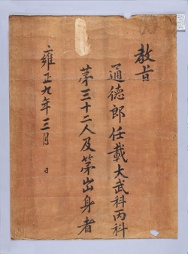 教旨
通德郎任載大武科丙科
第三十二人及第出身者
雍正九年三月 日